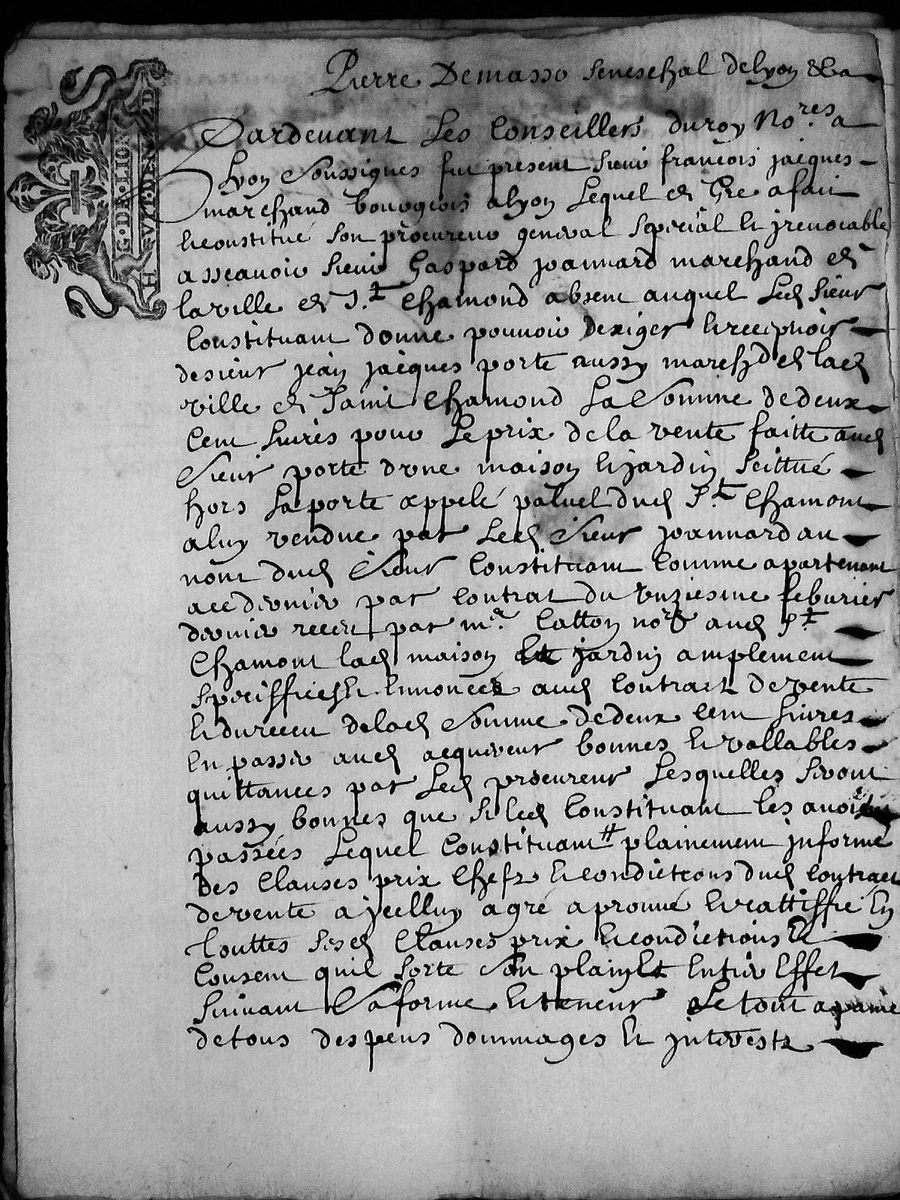 G·DE·LION
HVIT DEN D
Pierre Demasso seneschal delyon &ca
Pardevant Les Conseillers duroy No.res a
Lyon Soussignes fut present sieur françois jacques
marchand bourgeois alyon Lequel de Gre a fait
Et constitué son procureur general special & jrevocable
assçavoir sieur Gaspard joannard marchand de
laville de S.t Chamond absent auquel Led sieur
Constituant donne pouvoir dexiger & recepvoir
desieur jean jacques porte aussy march.d de lad
ville de Saint Chamond La Somme de deux
Cent Livres pour Le prix de la vente faitte aud
Sieur porte dune maison & jardin scittué
hors La porte appelé paluel dud S.t Chamont
aluy vendue par Led Sieur joannard au
nom dud Sieur Constituant Comme apartenant
ace dernier par Contrat du unziesme feburier
dernier receu par m.e Catton no.re aud S.t
Chamont lad maison Et jardin amplement
speciffiés & Ennoncés aud Contract de vente
Et du receu delad Somme de deux Cent Livres
En passer aud acquereur bonnes & vallables
quittances par Led procureur Lesquelles seront
aussy bonnes que si led Constituant les avoit
passées Lequel Constituant plainement jnformé
Des Clauses prix Chefz & condictions dud Contract
de vente a jcelluy agré aprouvé & rattiffié En
Touttes sesd Clauses prix & condictions &
Consent quil sorte Son plain & Entier Effet
suivant Sa forme & teneur Le tout apeine
de tous despens dommages & jnterestz